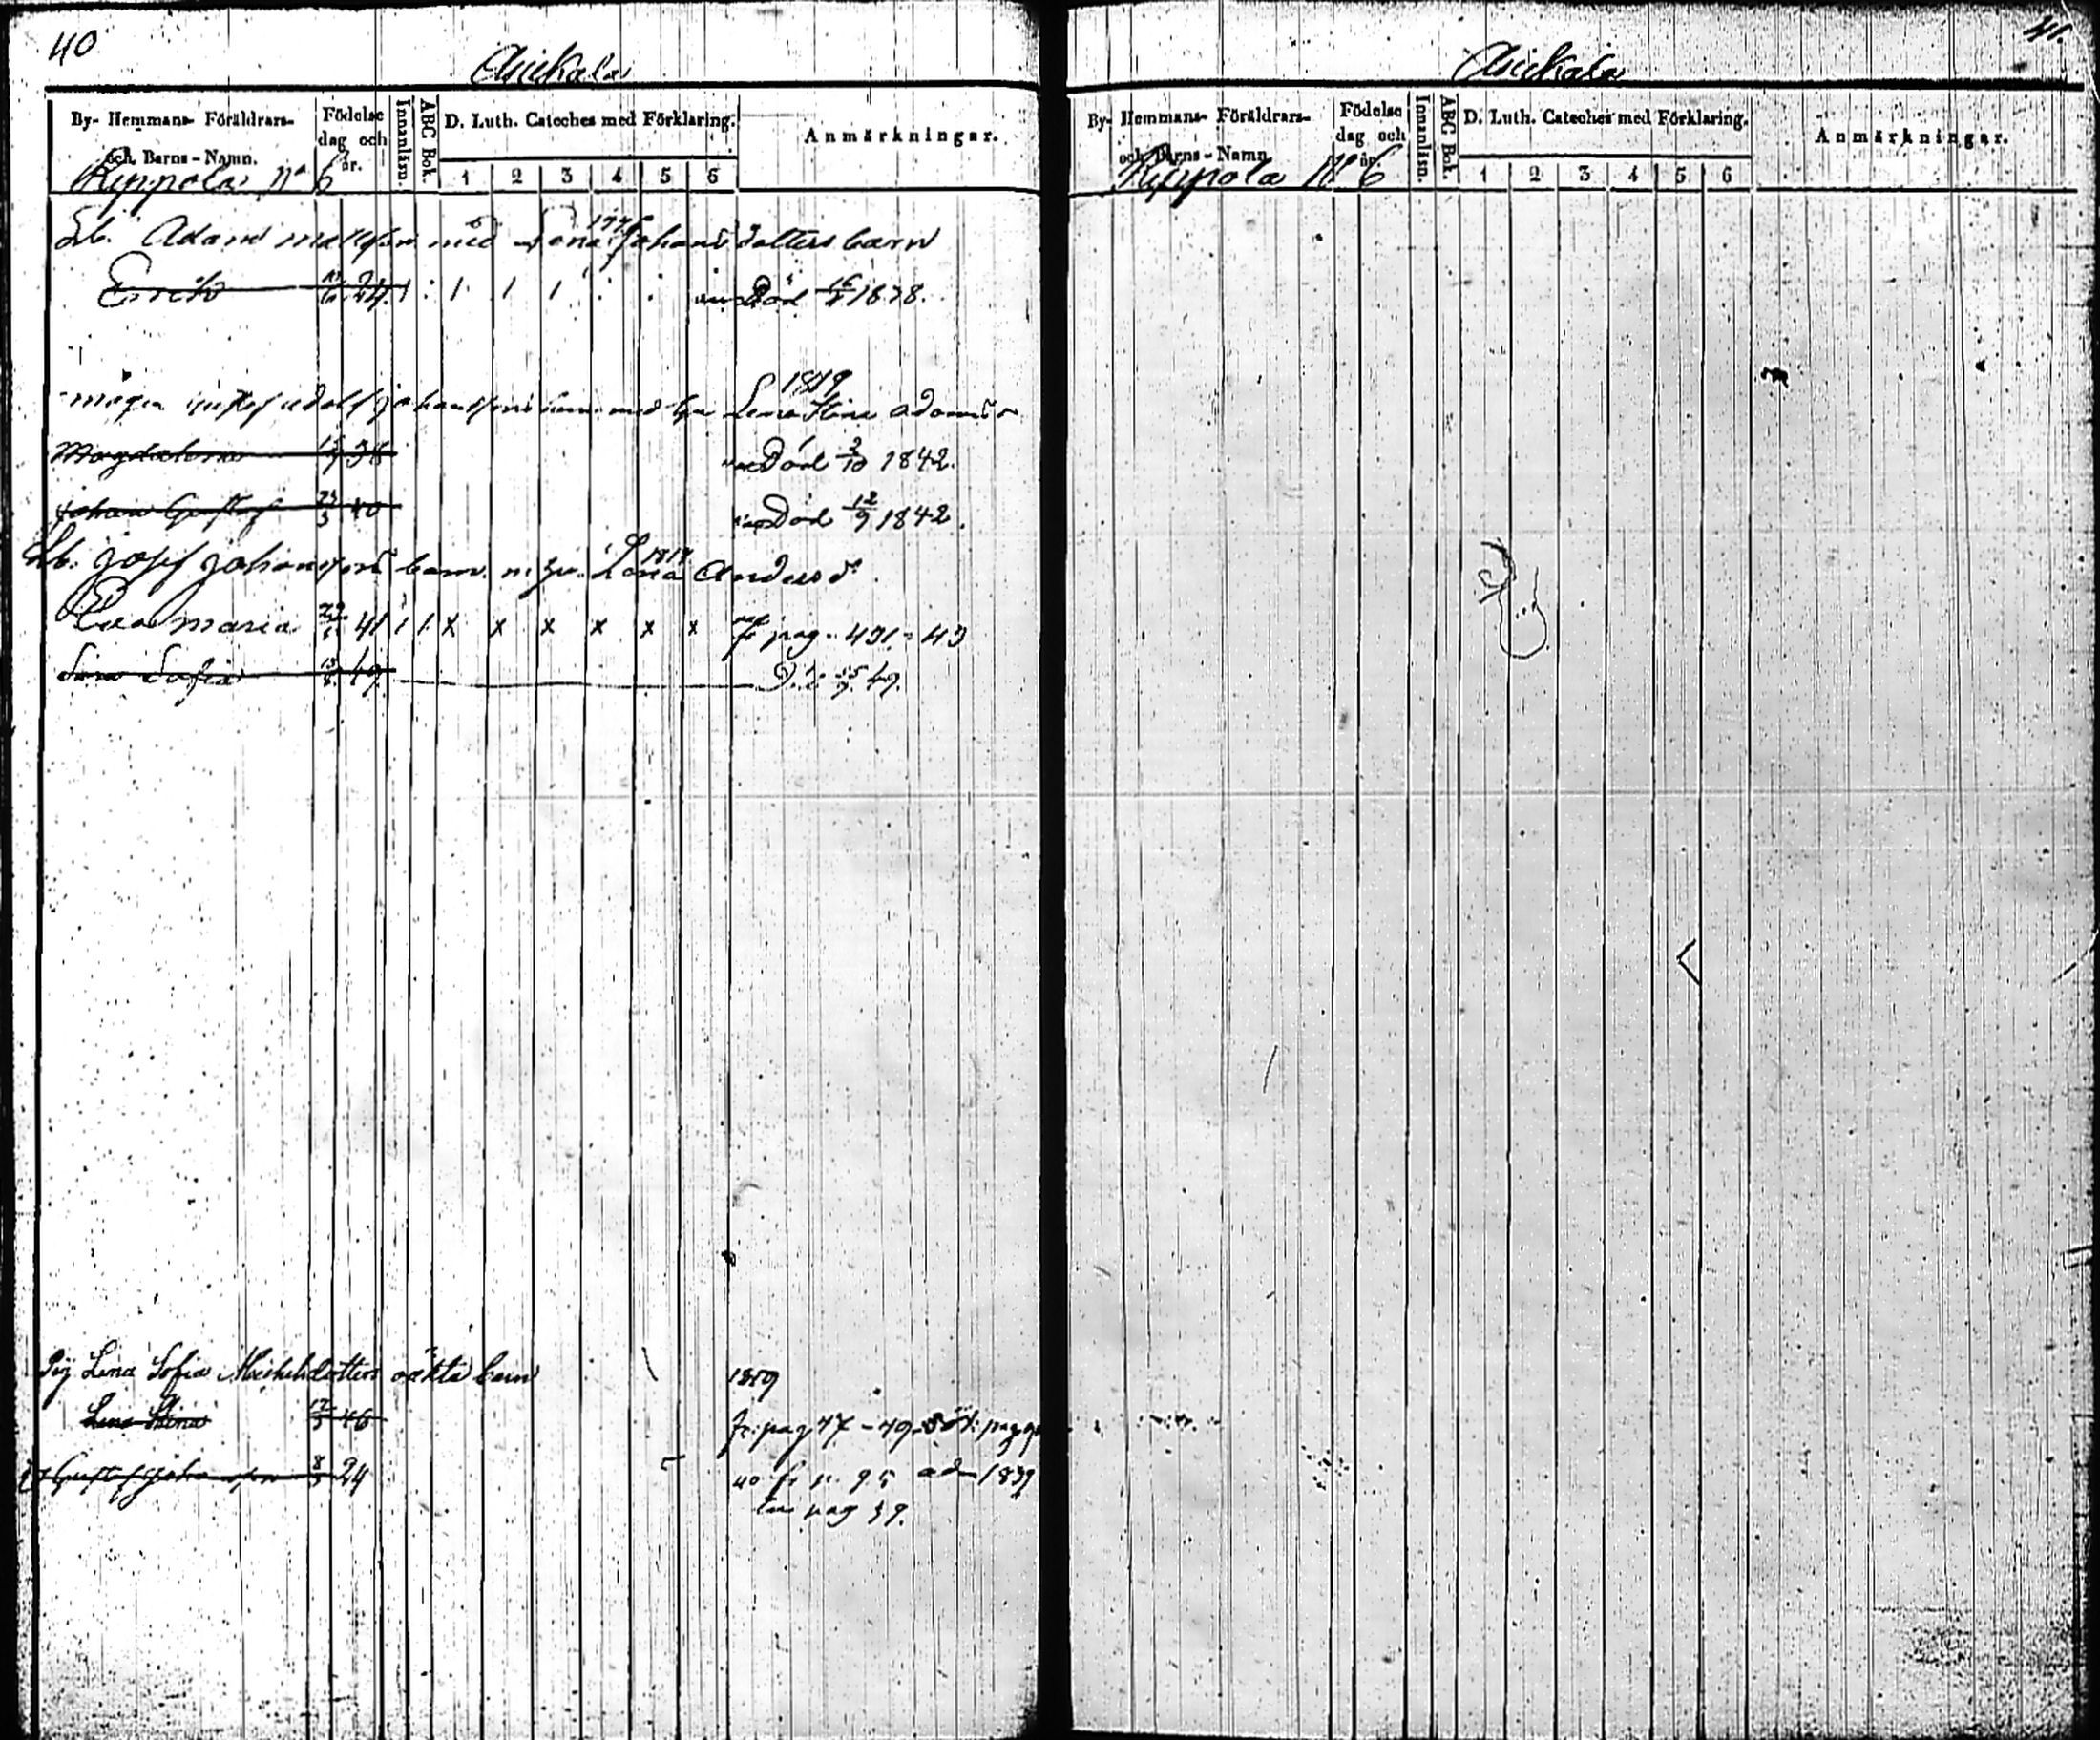 40
Asickala
By- Hemmans- Föräldrars- och Barns-Namn.
Födelse dag och år.
Innanläsn.
ABC Bok.
D. Luth. Cateches med Förklaring.
1 2 3 4 5 6
Anmärkningar.
Reppola No 6
Lb. Adam mattsson med Lena Johans dotters barn
Erich 24 1 1 1 1 Död 1838.
mågen Gustaf Adolf Johanssons barn med hu Lena Stina Adams 1819
Magdalena 38 Död 3/10 1842.
Johan Gustaf 23/3 40 Död 12/9 1842.
Lb. Josef Johanssons barn. m. hu. Lena Anders d. 1817
Eva Maria 41 1 1 x x x x x x fr pag. 431 - 43
Lena Sofia 49 49.
Pig Lena Sofia Michelsdotters oäkta barn
Lena Stina 12/3 46 fr. pag 47 - 49
Gustaf Johansson 8/3 24 40 fr p. 95 1839
pag 39.
41.
Asickala
By- Hemmans- Föräldrars- och Barns-Namn.
Födelse dag och år.
Innanläsn.
ABC Bok.
D. Luth. Cateches med Förklaring.
1 2 3 4 5 6
Anmärkningar.
Reppola No 6